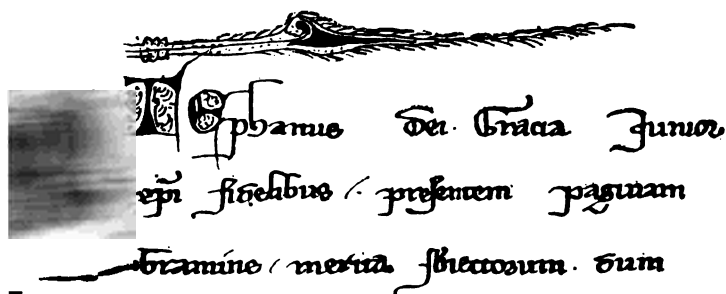 phanus Dei. Gracia Junior
fidelibus / presentem paginam
merita sbiectorum. dum